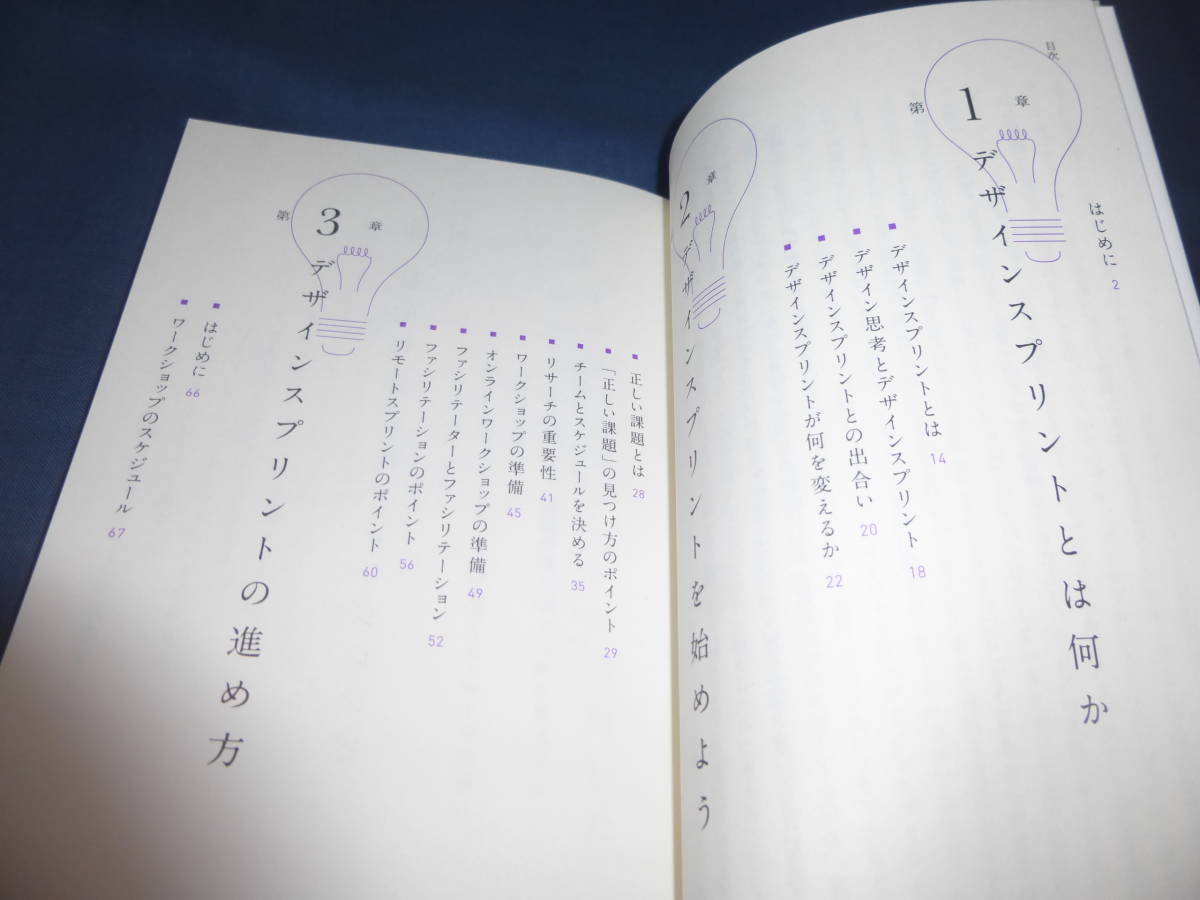 目次
はじめに 2
第1章 デザインスプリントとは何か
デザインスプリントとは 14
デザイン思考とデザインスプリント 18
デザインスプリントとの出合い 20
デザインスプリントが何を変えるか 22
第2章 デザインスプリントを始めよう
正しい課題とは 28
「正しい課題」の見つけ方のポイント 29
チームとスケジュールを決める 35
リサーチの重要性 41
ワークショップの準備 45
オンラインワークショップの準備 49
ファシリテーターとファシリテーション 52
ファシリテーションのポイント 56
リモートスプリントのポイント 60
第3章 デザインスプリントの進め方
はじめに 66
ワークショップのスケジュール 67